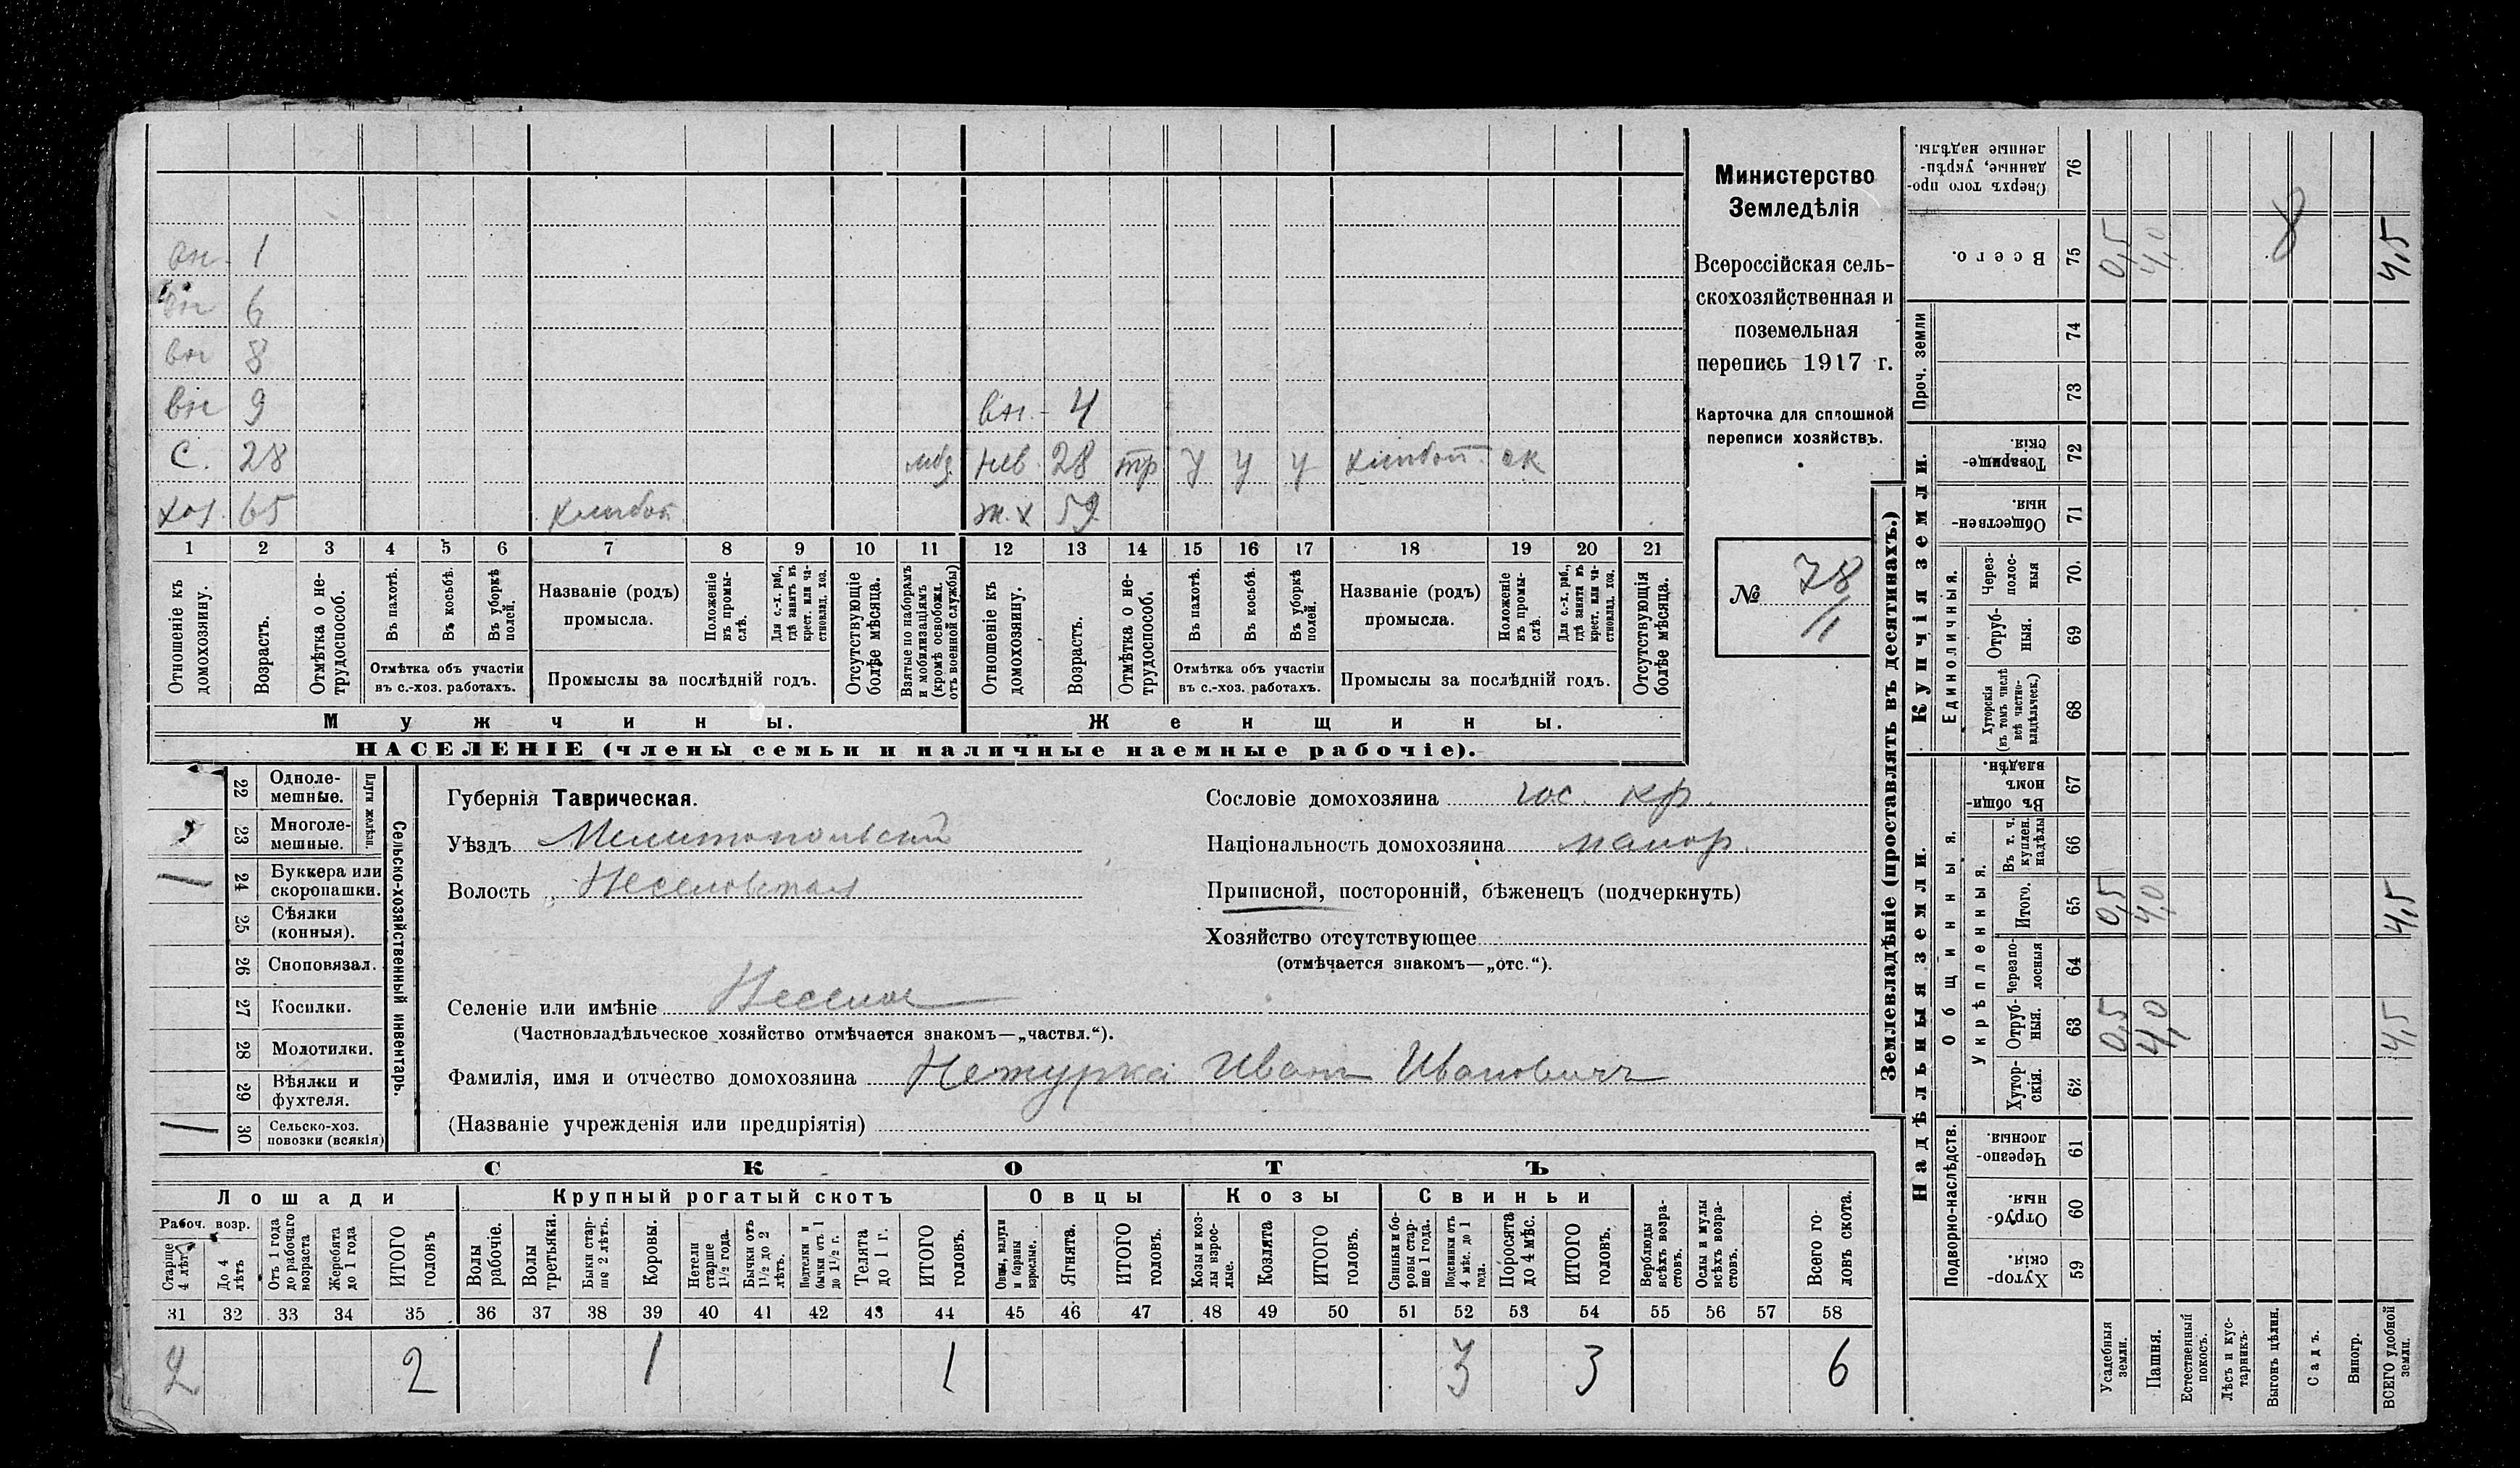 вн. 1
вн 6
вн 8
вн 9 вн. 4
с. 28 моб нев. 28 тр у у у хлебоп. ск
хоз. 65 хлебоп. ж.х 59
1 2 3 4 5 6 7 8 9 10 11 12 13 14 15 16 17 18 19 20 21
Отношеніе къ домохозяину.
Возрастъ.
Отмѣтка о не-трудоспособ.
Въ пахотѣ.
Въ косьбѣ.
Въ уборкѣ полей.
Отмѣтка объ участіи въ с.-хоз. работахъ.
Названіе (родъ) промысла.
Положеніе въ промы-слѣ.
Для с.-х. раб., гдѣ занятъ въ крест. или ча-стновлад. хоз.
Промыслы за послѣдній годъ.
Отсутствующіе болѣе мѣсяца.
Взятые по наборамъ и мобилизаціямъ (кромѣ освобожд. отъ военной службы)
Отношеніе къ домохозяину.
Возрастъ.
Отмѣтка о не-трудоспособ.
Въ пахотѣ.
Въ косьбѣ.
Въ уборкѣ полей.
Отмѣтка объ участіи въ с.-хоз. работахъ.
Названіе (родъ) промысла.
Положеніе въ промы-слѣ.
Для с.-х. раб., гдѣ занята въ крест. или ча-стновлад. хоз.
Промыслы за послѣдній годъ.
Отсутствующія болѣе мѣсяца.
Мужчины.
Женщины.
НАСЕЛЕНІЕ (члены семьи и наличные наемные рабочіе).
Министерство
Земледѣлія
Всероссійская сель-
скохозяйственная и
поземельная
перепись 1917 г.
Карточка для сплошной
переписи хозяйствъ.
№ 78/1
22 Одноле-мешные.
23 Многоле-мешные.
Плуги желѣзн.
24 Буккера или скоропашки.
25 Сѣялки (конныя).
26 Сноповязал.
27 Косилки.
28 Молотилки.
29 Вѣялки и фухтеля.
30 Сельско-хоз. повозки (всякія)
Сельско-хозяйственный инвентарь.
Губернія Таврическая.
Уѣздъ Мелитопольскій
Волость Веселовская
Селеніе или имѣніе Веселое
(Частновладѣльческое хозяйство отмѣчается знакомъ—„частвл.“).
Фамилія, имя и отчество домохозяина Нетурка Иванъ Ивановичъ
(Названіе учрежденія или предпріятія)
Сословіе домохозяина гос. кр.
Національность домохозяина малор.
Приписной, посторонній, бѣженецъ (подчеркнуть)
Хозяйство отсутствующее
(отмѣчается знакомъ—„отс.“).
СКОТЪ
Лошади
Крупный рогатый скотъ
Овцы
Козы
Свиньи
Рабоч. возр.
Старше 4 лѣтъ
До 4 лѣтъ
Отъ 1 года до рабочаго возраста
Жеребята до 1 года
ИТОГО головъ
Волы рабочіе.
Волы третьяки.
Быки стар-ше 2 лѣтъ.
Коровы.
Нетели старше 1 1/2 года.
Бычки отъ 1 1/2 до 2 лѣтъ.
Подтелки и бычки отъ 1 до 1 1/2 г.
Телята до 1 г.
ИТОГО головъ.
Овцы, валухи и бараны взрослые.
Ягнята.
ИТОГО головъ.
Козы и коз-лы взрос-лые.
Козлята
ИТОГО головъ.
Свиньи и бо-ровы стар-ше 1 года.
Подсвинки отъ 4 мѣс. до 1 года.
Поросята до 4 мѣс.
ИТОГО головъ.
Верблюды всѣхъ возра-стовъ.
Ослы и мулы всѣхъ возра-стовъ.
Всего го-ловъ скота.
31 32 33 34 35 36 37 38 39 40 41 42 43 44 45 46 47 48 49 50 51 52 53 54 55 56 57 58
2 2 1 1 3 3 6
Землевладѣніе (проставлять въ десятинахъ.)
Сверхъ того про-данные, укрѣп-ленные надѣлы. 76
Всего. 75 0,5 4,0 8 4,5
Проч. земли 74
73
Купчія земли.
Товарище-скія. 72
Обществен-ныя. 71
Единоличныя.
Через-полос-ныя 70.
Отруб-ныя. 69
Хуторскія (въ томъ числѣ всѣ частно-владѣльческ.) 68
Надѣльныя земли.
Общинныя.
Въ общин-номъ владѣн. 67
Укрѣпленныя.
Въ т. ч. куплен. надѣлы 66
Итого. 65 0,5 4,0 4,5
Черезпо-лосныя 64
Отруб-ныя. 63 0,5 4,0 4,5
Хутор-скія. 62
Подворно-наслѣдств.
Черезпо-лосныя. 61
Отруб-ныя. 60
Хутор-скія. 59
Усадебныя земли.
Пашня.
Естественный покосъ.
Лѣсъ и кус-тарникъ.
Выгонъ цѣлин.
Садъ.
Виногр.
ВСЕГО удобной земли.